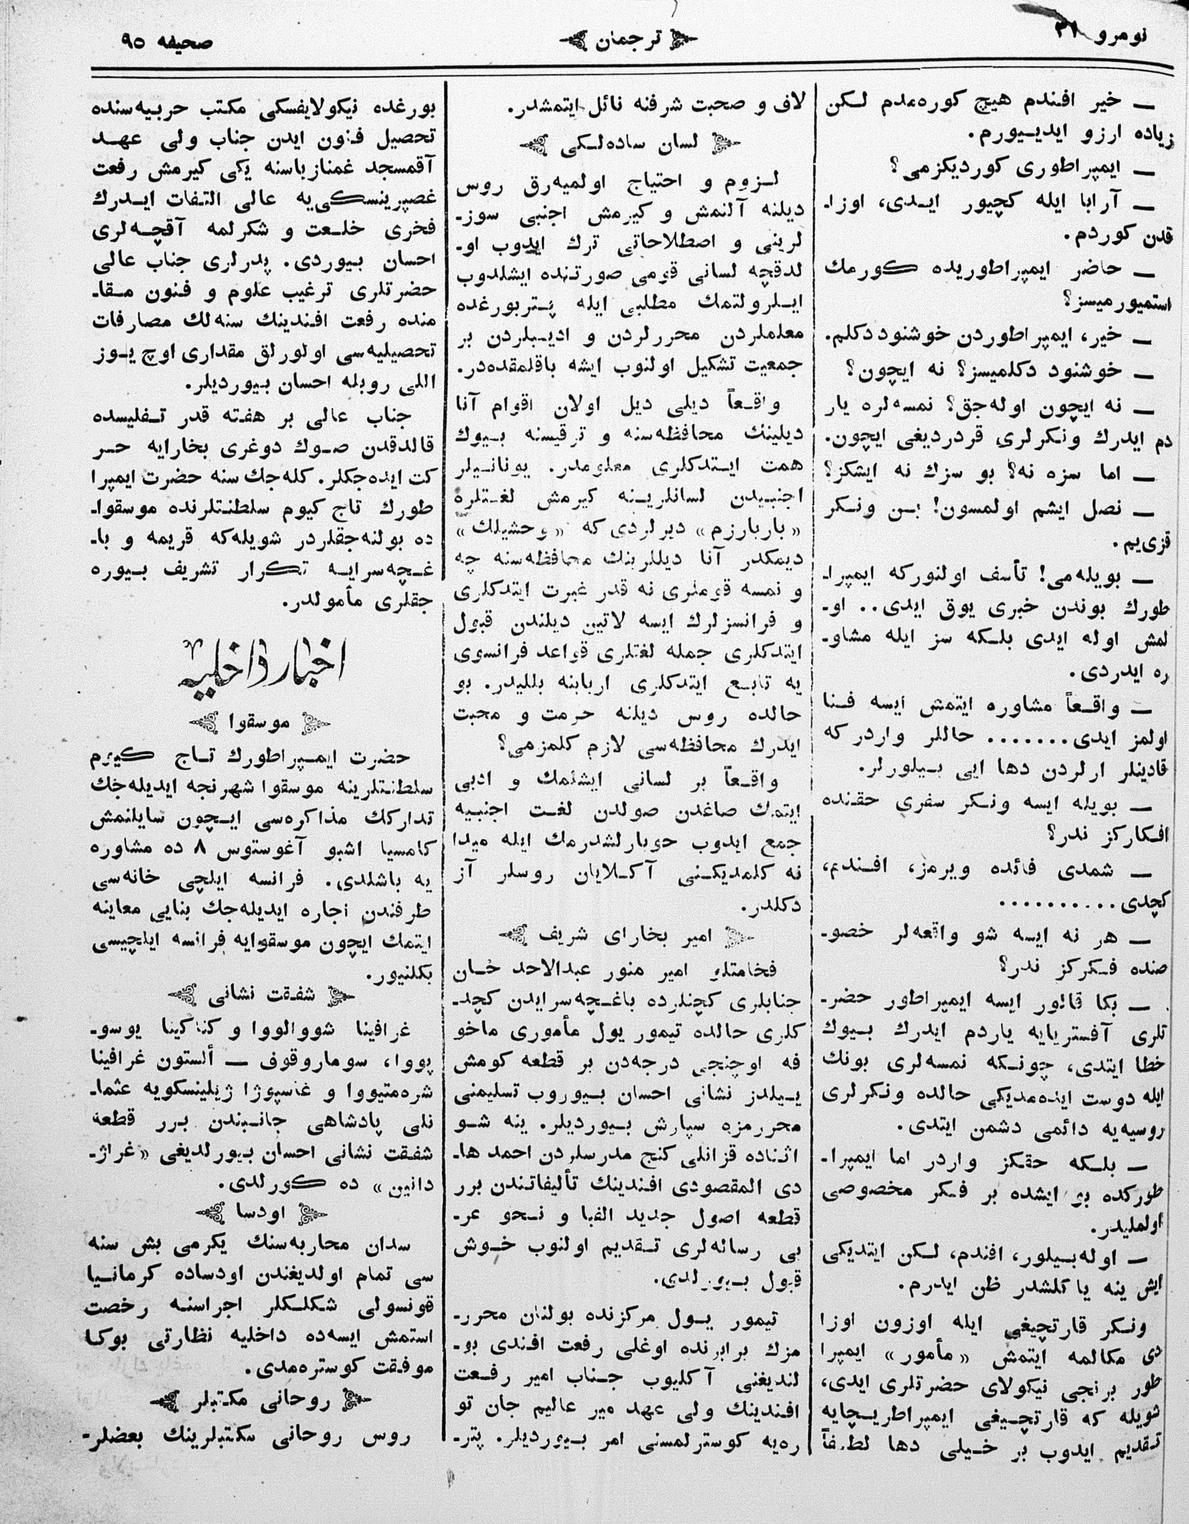 نومرو ٣١
ترجمان
صحيفه ٩٥
— خير افندم هيچ كوره‌مدم لكن
زياده آرزو ايديـيورم.
— ايمپراطورى كورديكزمى؟
— آرابا ايله كچيور ايـدى، اوزا-
قدن كوردم.
— حاضر ايمپراطوريده كورمك
استميورميسز؟
— خير، ايمپراطوردن خوشنود دكلم.
— خوشنود دكلميسز؟ نه ايچون؟
— نه ايچون اوله‌جق؟ نمسه‌لره يار
دم ايدرك ونكرلرى قردرديغى ايچون.
— اما سزه نه؟ بو سزك نه ايشكز؟
— نصل ايشم اولمسون! بـن ونـكر
قزى‌يم.
— بويله‌مى! تأسف اولنوركه ايمپرا-
طورك بوندن خبرى يوق ايدى.. او-
لمش اوله ايدى بلـكه سز ايله مشاو-
ره ايدردى.
— واقـعاً مشاوره ايتمش ايسه فـنا
اولمز ايدى....... حاللر واردر كه
قادينلر ارلردن دها ايى بـيلورلر.
— بويله ايسه ونـكر سفرى حقنده
افـكاركز ندر؟
— شمدى فائده ويرمز، افـندم،
كچدى..........
— هر نه ايسه شو واقعه‌لر خصو-
صنده فـكركز ندر؟
— بكا قالور ايسه ايمپراطور حضر-
تلرى آفستريايه ياردم ايدرك بـيوك
خطا ايتدى، چونـكه نمسه‌لرى بونك
ايله دوست ايده‌مديكى حالده ونكرلرى
روسيه‌يه دائمى دشمن ايتدى.
— بلـكه حقـكز واردر اما ايمپرا-
طوركده بو ايشده بر فـكر مخصوصى
اولمليدر.
— اوله‌بـيلور، افندم، لـكن ايتديكى
ايش ينه ياكلشدر ظن ايدرم.
ونـكر قارتچيغى ايله اوزون اوزا
دى مكالمه ايتمش «مأمور» ايمپرا
طور برنجى نيكولاى حضرتلرى ايدى،
شويله كه قارتچـيغى ايمپراطريـچايه
تـقديم ايدوب بر خـيلى دها لطـيفاً
لاف و صحبت شرفنه نائل ايتمشدر.
لسان ساده‌لـكى
لـزوم و احتياج اولميه‌رق روس
ديلنه آلنمش و كيرمش اجنبى سوز-
لرينى و اصطلاحاتى ترك ايدوب او-
لدقچه لسانى قومى صورتـنده ايشلدوب
ايـلرولتمك مطلبى ايله پـتربورغده
معلملردن محررلردن و اديـبلردن بر
جمعيت تشكيل اولنوب ايشه باقلمقده‌در.
واقـعاً ديلى ديل اولان اقوام آنا
ديلينك محافظه‌سنه و ترقيسنه بـيوك
همت ايـتدكلرى معلومدر. يونانـيلر
اجنبيدن لسانلريـنه كيرمش لغـتلره
«باربارزم» ديرلردى كه «وحشيلك»
ديمكدر آنا ديللرينك محافظه‌سنه چه
و نمسه قوملرى نه قدر غيرت ايتدكلرى
و فرانسزلرك ايسه لاتين ديلندن قبول
ايتدكلرى جمله لغتلرى قواعد فرانسوى
يه تابـع ايتدكلرى اربابنه بلليدر. بو
حالده روس ديلنه حرمت و محبت
ايدرك محافظه‌سى لازم كلمزمى؟
واقـعاً بر لسانى ايشلمك و ادبى
ايتمك صاغدن صولدن لغت اجنبيه
جمع ايدوب حوبارلشدرمك ايله ميدا
نه كلمديكـنى آكـلايان روسلر آز
دكلدر.
امير بخاراى شريف
فخامتلو امير منور عبدالاحد خـان
جنابلرى كچنلرده باغـچه‌سرايدن كچد-
كلرى حالده تيمور يول مأمورى ماخو
فه اوچنجى درجه‌دن بر قطعه كومش
يـيلدز نشانى احسان بـيوروب تسليمنى
محررمزه سپارش بـيورديلر. ينه شـو
اثـناده قزانلى كنج مدرسلردن احمد ها-
دى المقصودى افندينك تأليفاتندن برر
قطعه اصول جديد الفبا و نـحو عر-
بى رساله‌لرى تـقديم اولنوب خـوش
قبول بـيورلدى.
تيمور يـول مركزنده بولنان محرر-
مزك برابرنده اوغلى رفعت افندى بو-
لنديغنى آكليوب جـناب امير رفـعت
افـندينك ولى عهد مير عاليم جان تو
ره‌يه كوسترلمسنى امر بـيورديلر. پتر-
بورغده نيكولايفسكى مكتب حربيه‌سنده
تحصيل فنون ايدن جناب ولى عهـد
آقمسجد غمنازياسنه يكى كيرمش رفعت
غصپرينسكى‌يه عالى التـفات ايـدرك
فخرى خلـعت و شكرلمه آقچـه‌لرى
احسان بـيوردى. پدرلرى جناب عالى
حضرتلرى ترغيب علوم و فنون مـقا-
منده رفعت افـندينك سنه‌لك مصارفات
تحصيليه‌سى اولورلق مقدارى اوچ يـوز
اللى روبله احسان بـيورديلر.
جناب عالى بر هفـته قدر تـفليسده
قالدقدن صـوك دوغرى بخارايه حـر
كت ايده‌جكلر. كله‌جك سنه حضرت ايمپرا
طورك تاج كيوم سلطنـتلرنده موسقوا-
ده بولنه‌جقلردر شويله‌كه قريمه و با-
غـچه‌سرايـه تـكرار تشريف بـيوره
جقلرى مأمولدر.
اخبار داخليه
موسقوا
حضرت ايمـپراطورك تـاج كـيوم
سلطـنتلرينه موسقوا شهرنجه ايديله‌جك
تداركك مذاكره‌سى ايـچون سايلنمش
كامسيا اشبو آغوستوس ٨ ده مشاوره
يه باشلدى. فرانسه ايلچى خانه‌سى
طرفندن اجاره ايديله‌جك بنايى معاينه
ايتمك ايچون موسقوايه فرانسه ايلچيسى
بكلنيور.
شفـقت نشانى
غرافينا شووالووا و كناكينا يوسو-
پووا، سوماروقوف — ألستون غرافينا
شره‌متيووا و غاسپوژا ژيلينسكويه عثما-
نلى پادشاهى جانـبندن بـرر قطعه
شفـقت نشانى احسان بيورلديغى «غراژ-
دانين» ده كورلدى.
اودسا
سدان محاربه‌سنك يكرمى بش سنه
سى تمام اولديغندن اودساده كرمانـيا
قونسولى شكلـكلر اجراسنه رخصت
استمش ايسه‌ده داخليه نظارتى بوكا
موفـقت كوستره‌مدى.
روحانى مكتبلر
روس روحانى مكتبلرينك بعضلر-